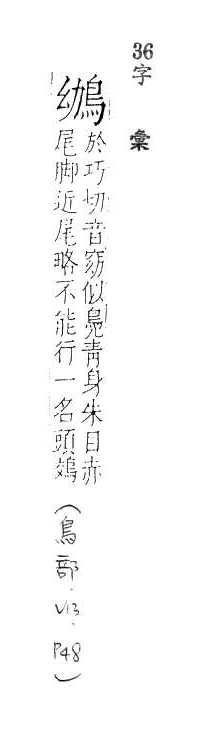 36字彙
䳩
於巧切音窈似鳧青身朱目赤
尾脚近尾略不能行一名頭鵁
(鳥部.V13.P48)